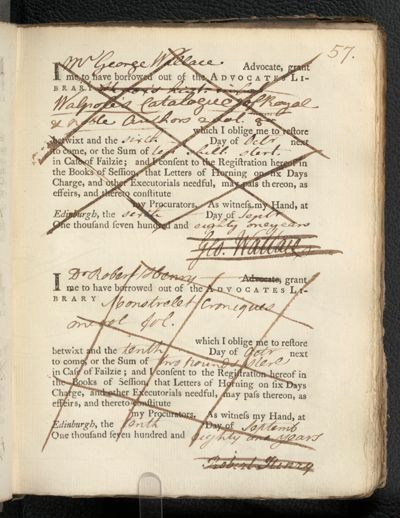 57.
I Mr George Wallace Advocate, grant
me to have borrowed out of the ADVOCATES LI-
BRARY
Walpole's Catalogue of Royal
& noble Authors 2 vol. 8o
which I oblige me to restore
betwixt and the sixth Day of Octr next
to come, or the Sum of Sterl.
in Case of Failzie; and I consent to the Registration hereof in
the Books of Session, that Letters of Horning on six Days
Charge, and other Executorials needful, may pass thereon, as
effeirs, and thereto constitute
my Procurators. As witness my Hand, at
Edinburgh, the sixth Day of Septr
One thousand seven hundred and eighty one years
Geo. Wallace
I Dr Robert Henry Advocate, grant
me to have borrowed out of the ADVOCATES LI-
BRARY Monstrelet Croniques
one vol. fol.
which I oblige me to restore
betwixt and the tenth Day of Octr next
to come, or the Sum of two pounds Sterl.
in Case of Failzie; and I consent to the Registration hereof in
the Books of Session, that Letters of Horning on six Days
Charge, and other Executorials needful, may pass thereon, as
effeirs, and thereto constitute
my Procurators. As witness my Hand, at
Edinburgh, the tenth Day of Septemb
One thousand seven hundred and eighty one years
Robert Henry